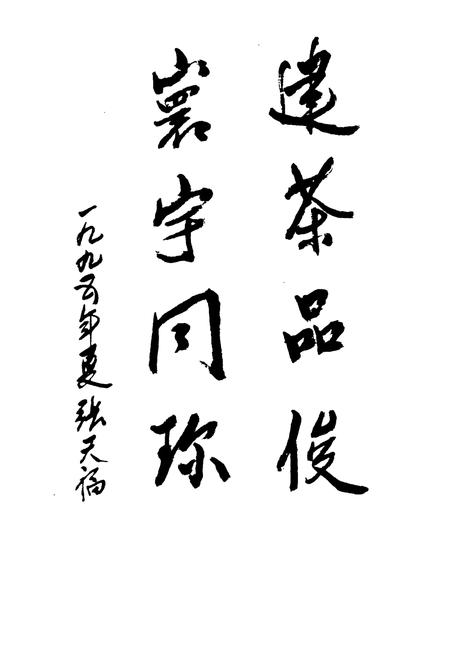 建茶品俊
寰宇同珍
一九九五年夏 张天福